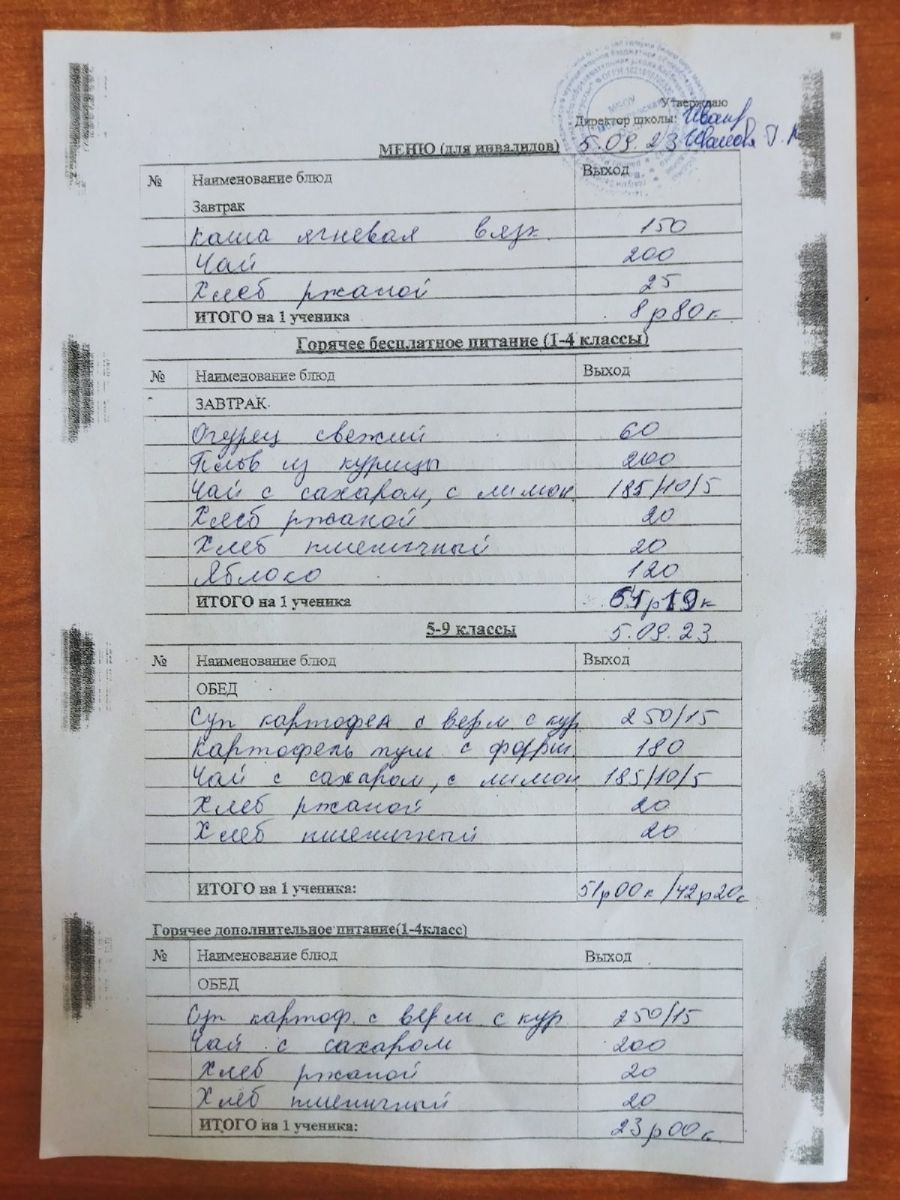 Утверждаю
Директор школы:
5.09.23 Иванова Г.
МЕНЮ (для инвалидов)
№ Наименование блюд Выход
Завтрак
каша ячневая вязк 150
Чай 200
Хлеб ржаной 25
ИТОГО на 1 ученика 8р80к
Горячее бесплатное питание (1-4 классы)
№ Наименование блюд Выход
ЗАВТРАК
Огурец свежий 60
Плов из курицы 200
Чай с сахаром, с лимон 185/10/5
Хлеб ржаной 20
Хлеб пшеничный 20
Яблоко 120
ИТОГО на 1 ученика
5-9 классы 5.09.23
№ Наименование блюд Выход
ОБЕД
Суп картофел с верм с кур 250/15
Картофель туш с 180
Чай с сахаром, с лимон 185/10/5
Хлеб ржаной 20
Хлеб пшеничный 20
ИТОГО на 1 ученика: 51р00к/42р20к
Горячее дополнительное питание(1-4класс)
№ Наименование блюд Выход
ОБЕД
Суп картоф. с верм с кур 250/15
Чай с сахаром 200
Хлеб ржаной 20
Хлеб пшеничный 20
ИТОГО на 1 ученика: 23р00к